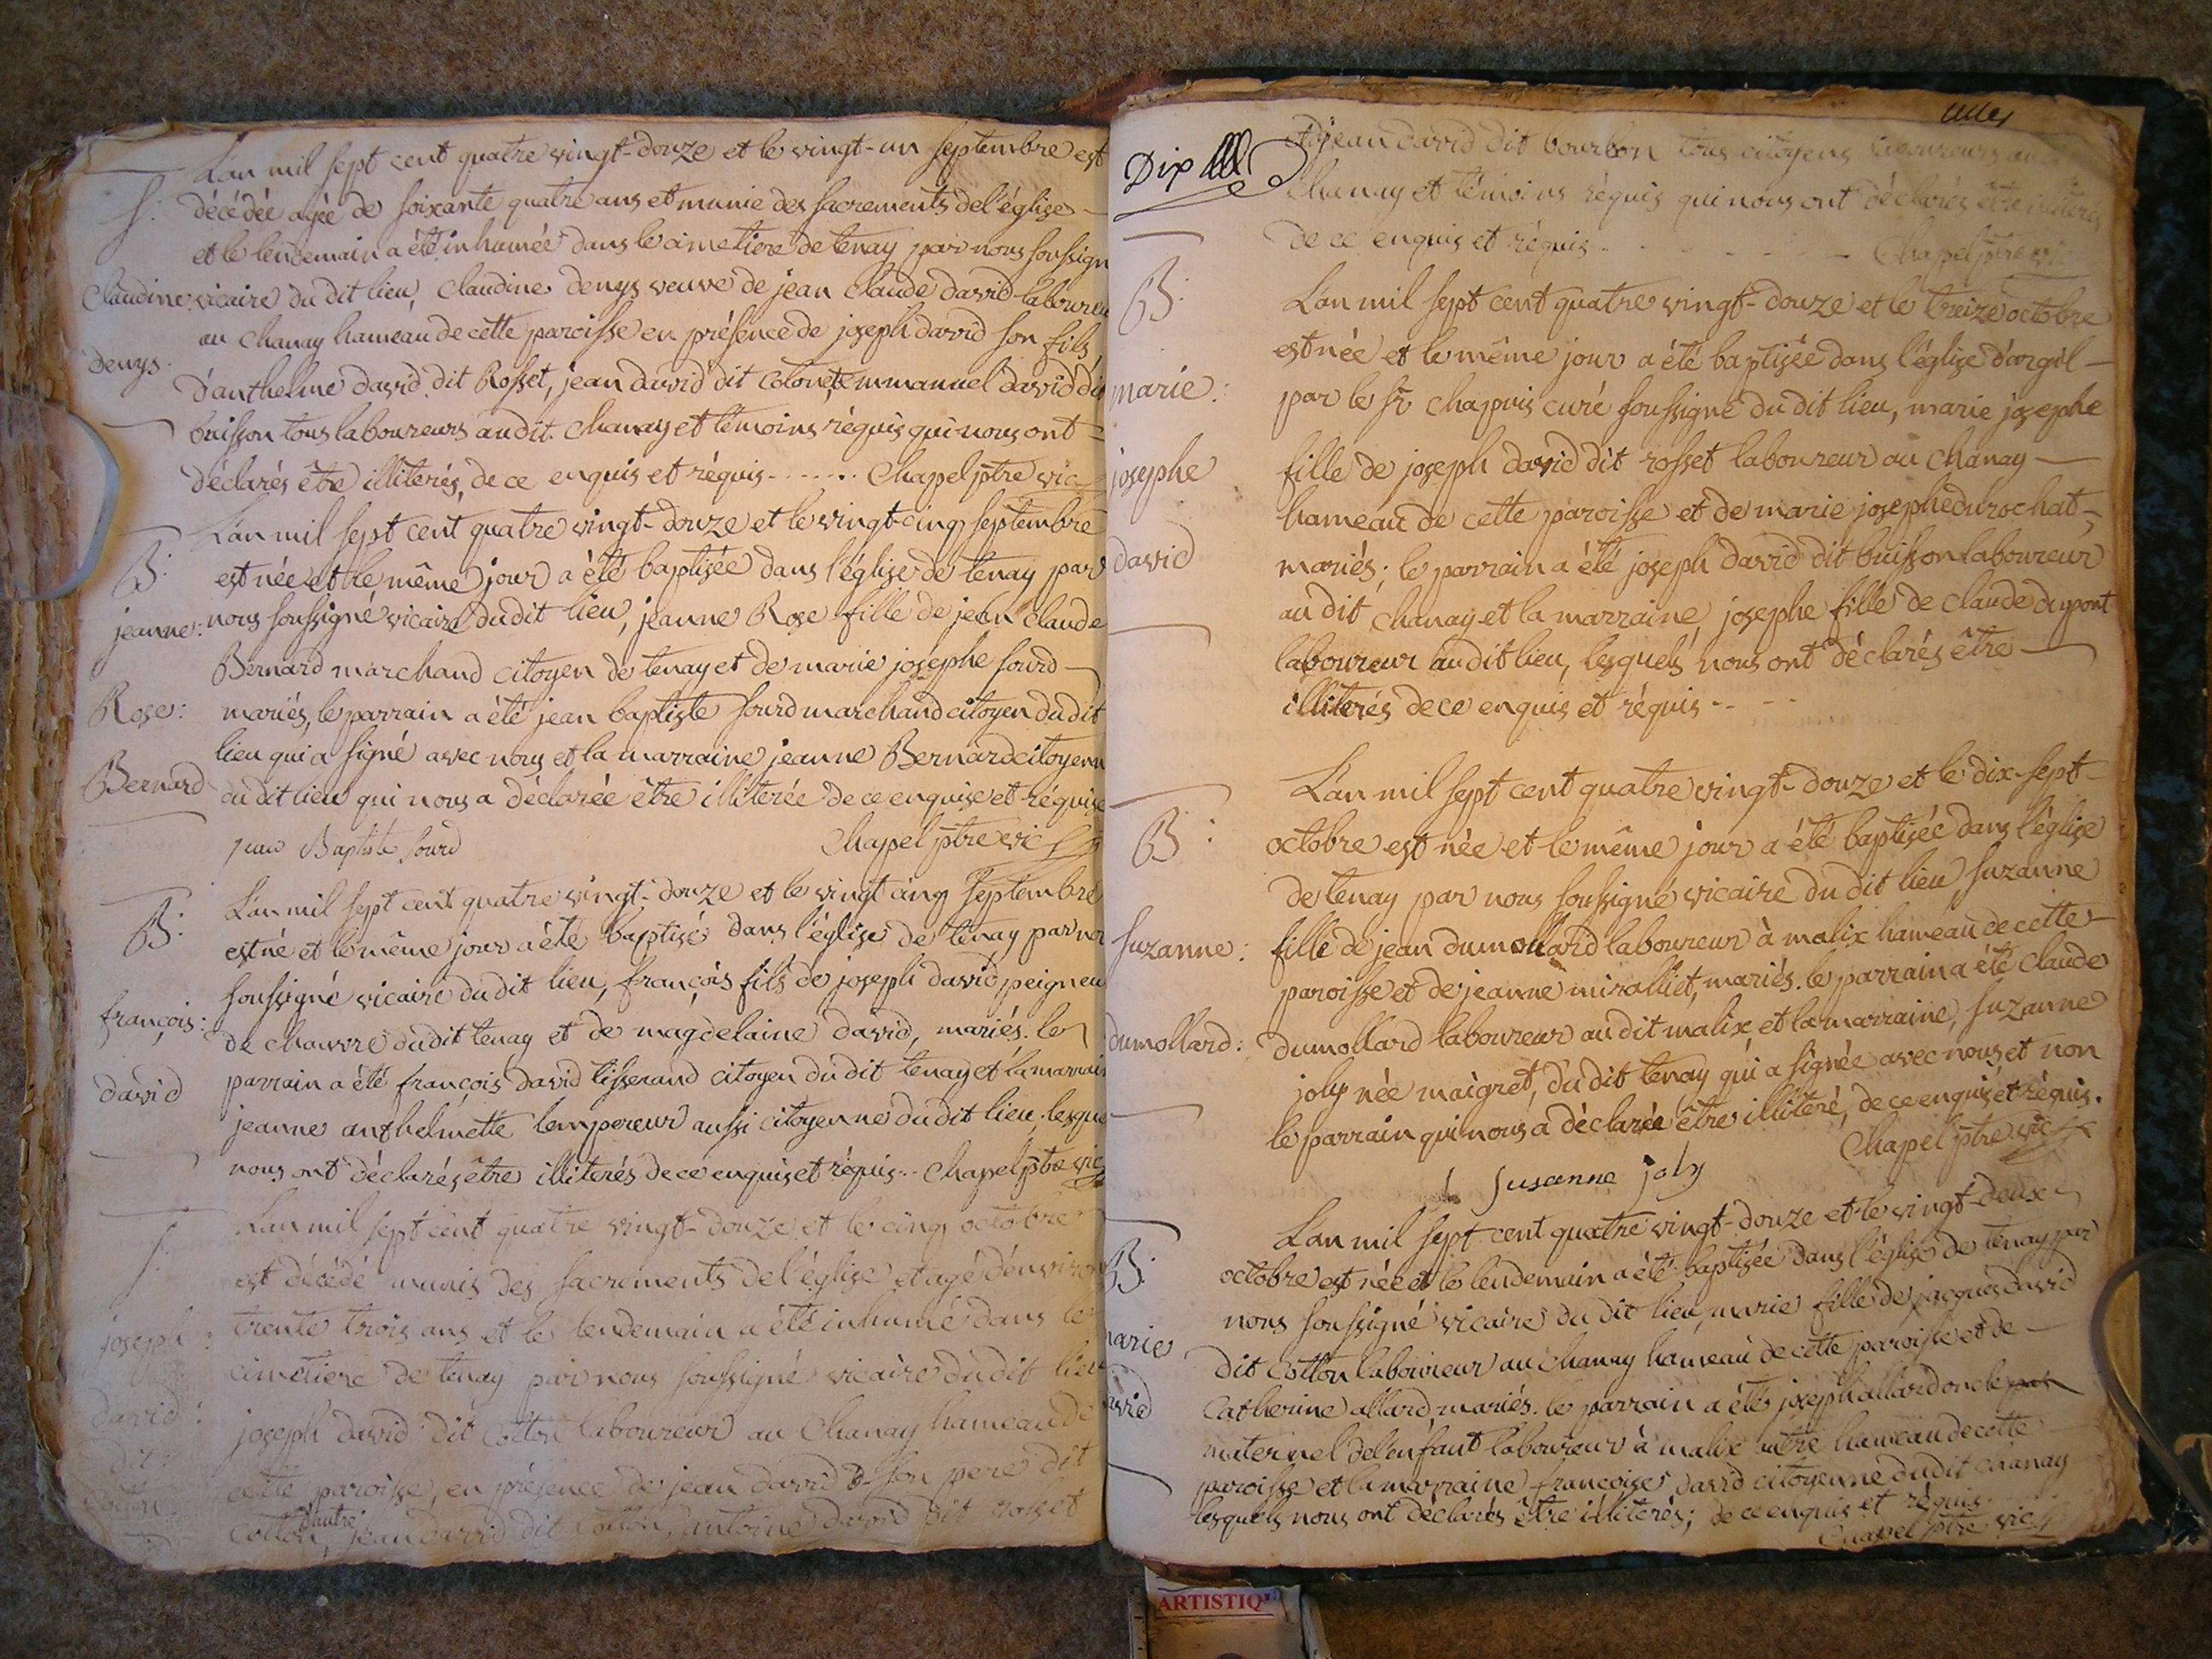 L'an mil sept cent quatre vingt-douze et le vingt-un septembre est
S: décédée agée de soixante quatre ans et munie des sacrements de l'église
et le lendemain a été inhumée dans le cimetiere de tenay par nous soussign
Claudine vicaire du dit lieu, Claudine denys veuve de jean claude david laboureu
au chanay hameau de cette paroisse en présence de joseph david son fils
denys.
d'anthelme david dit Rosset, jean david dit colonet, emmanuel david di
buisson tous laboureurs au dit chanay et témoins réquis qui nous ont
déclarés être illiterés, de ce enquis et réquis....... Chapel ptre vic
L'an mil sept cent quatre vingt-douze et le vingt-cinq septembre
B: est née et le même jour a été baptisée dans l'église de tenay par
jeanne: nous soussigné vicaire du dit lieu, jeanne Rose fille de jean claude
Bernard marchand citoyen de tenay et de marie josephe sourd
Rose: mariés, le parrain a été jean baptiste sourd marchand citoyen du dit
lieu qui a signé avec nous et la marraine jeanne Bernard citoyenn
Bernard du dit lieu qui nous a déclarée être illiterée de ce enquise et réquise
jean Baptiste sourd Chapel ptre vic
L'an mil sept cent quatre vingt-douze et le vingt cinq septembre
B: est né et le même jour a été baptisé dans l'église de tenay par no
soussigné vicaire du dit lieu, françois fils de joseph david peigneu
françois: de chanvre du dit tenay et de magdelaine david, mariés. le
david parrain a été françois david tisserand citoyen du dit tenay et la marrain
jeanne anthelmette lempereur aussi citoyenne du dit lieu, lesque
nous ont déclarés être illiterés de ce enquis et réquis.. Chapel ptre vic
L'an mil sept cent quatre vingt-douze et le cinq octobre
S: est décédé munis des sacrements de l'église et agé d'environ
joseph: trente trois ans et le lendemain a été inhumé dans le
cimetiere de tenay par nous soussigné vicaire du dit lieu
david: joseph david dit Cotton laboureur au chanay hameau de
dit: cette paroisse, en présence de jean david son pere dit
Cotton
autre
Cotton, jean david dit Cotton, antoine david dit rosset
Dix
et jean david dit bourbon tous citoyens laboureurs au
Chanay et témoins réquis qui nous ont déclarés être illiterés
de ce enquis et réquis - - - - - Chapel ptre vic
B: L'an mil sept cent quatre vingt-douze et le treize octobre
est née et le même jour a été baptisée dans l'église d'argil
marie: par le sr chapuis curé soussigné du dit lieu, marie josephe
josephe fille de joseph david dit rosset laboureur au chanay
hameau de cette paroisse et de marie josephe durochat,
david mariés; le parrain a été joseph david dit buisson laboureur
au dit chanay et la marraine josephe fille de claude dupont
laboureur au dit lieu, lesquels nous ont déclarés être
illiterés de ce enquis et réquis - - - -
L'an mil sept cent quatre vingt-douze et le dix-sept
B: octobre est née et le même jour a été baptisée dans l'église
de tenay par nous soussigné vicaire du dit lieu suzanne
suzanne: fille de jean dumollard laboureur à malix hameau de cette
paroisse et de jeanne miralliet, mariés. le parrain a été claude
dumollard: dumollard laboureur au dit malix, et la marraine, suzanne
joly née maigret, du dit tenay qui a signée avec nous et non
le parrain qui nous a déclarée être illiteré, de ce enquis et réquis.
Chapel ptre vic
Susanne joly
L'an mil sept cent quatre vingt-douze et le vingt-deux
B: octobre est née et le lendemain a été baptisée dans l'église de tenay par
nous soussigné vicaire du dit lieu, marie fille de jacques david
marie dit Cotton laboureur au chanay hameau de cette paroisse et de
avid Catherine allard mariés. le parrain a été joseph allard oncle
maternel de l'enfant laboureur à malix autre hameau de cette
paroisse et la marraine françoise david citoyenne du dit chanay
lesquels nous ont déclarés être illiterés; de ce enquis et réquis.
Chapel ptre vic
ARTISTIQ